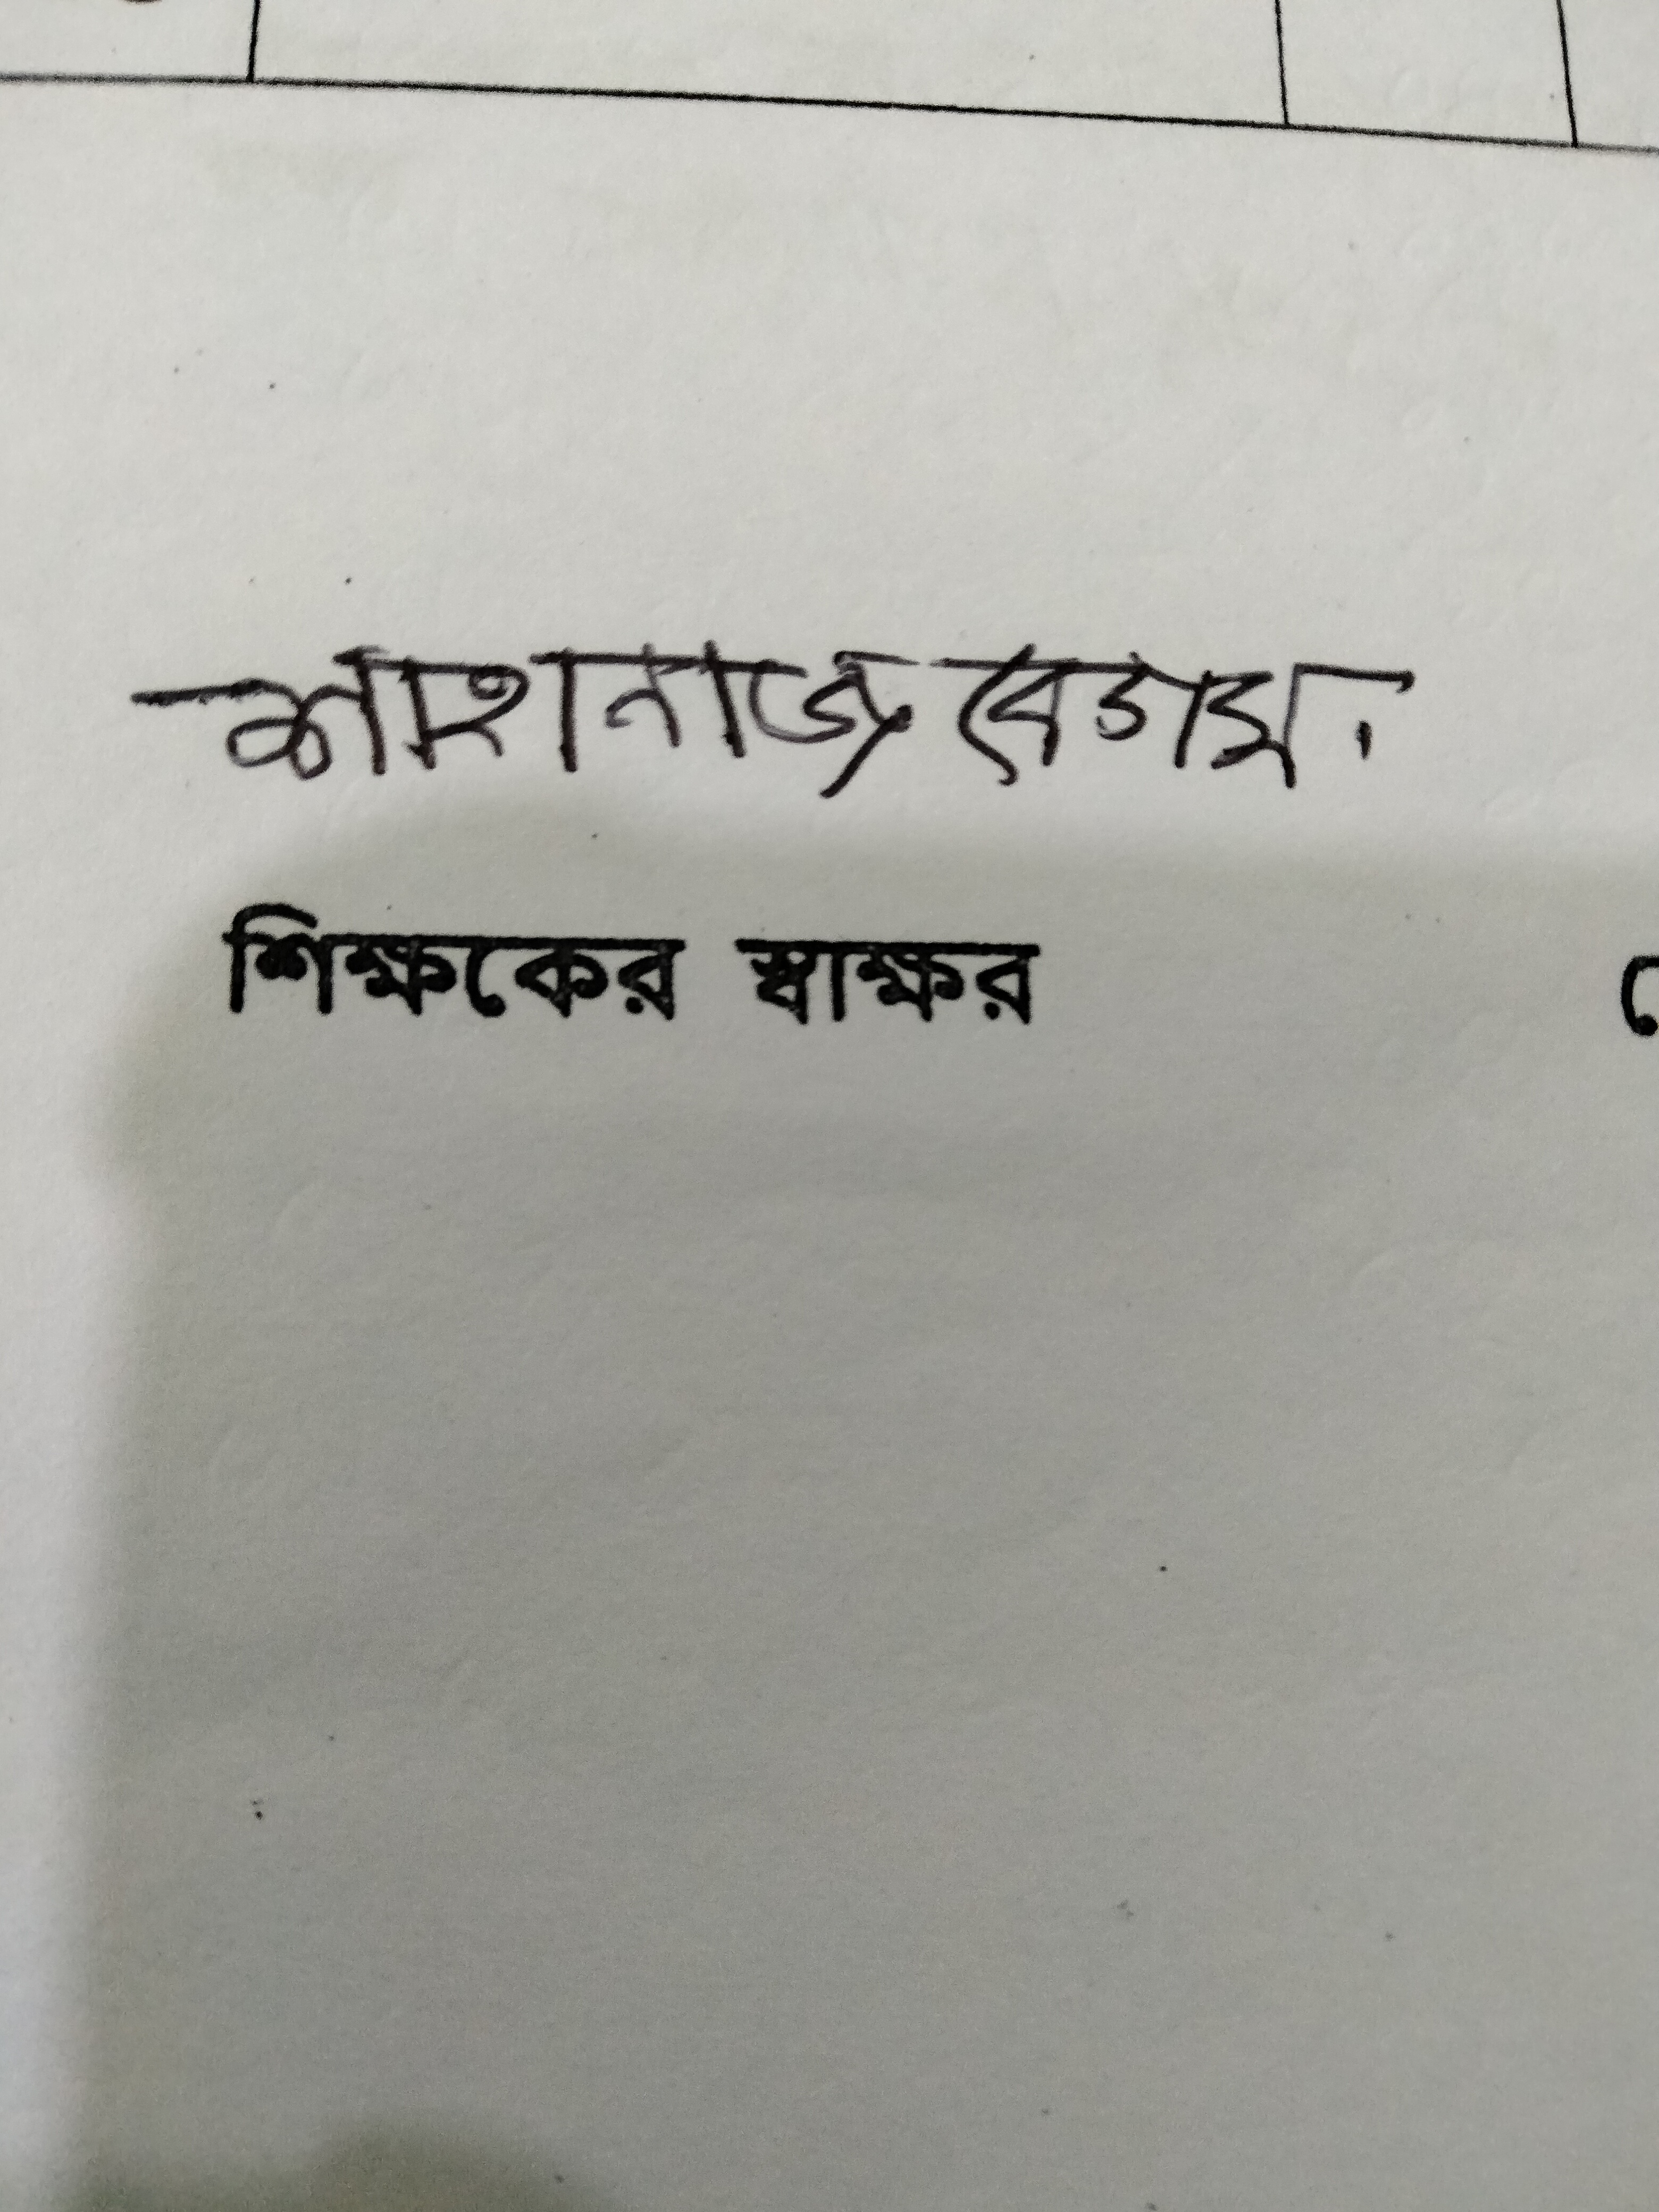 শাহনাজ বেগম.
শিক্ষকের স্বাক্ষর